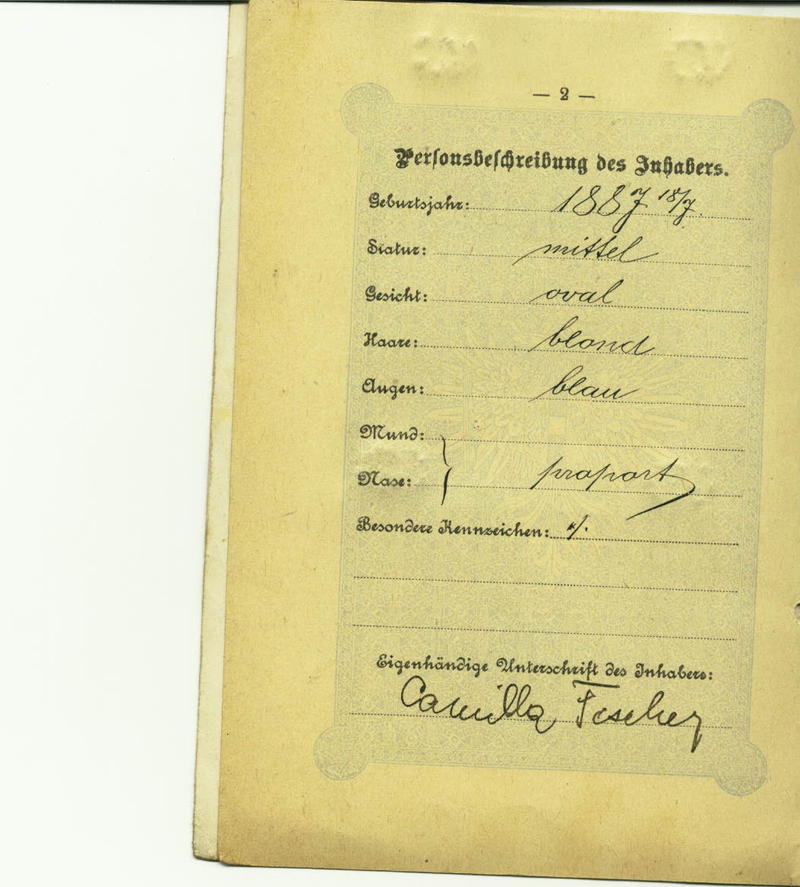 — 2 —
Personsbeschreibung des Inhabers.
Geburtsjahr: 1887 18/7.
Statur: mittel
Gesicht: oval
Haare: blond
Augen: blau
Mund:
Nase: proport
Besondere Kennzeichen: ./.
Eigenhändige Unterschrift des Inhabers:
Camilla